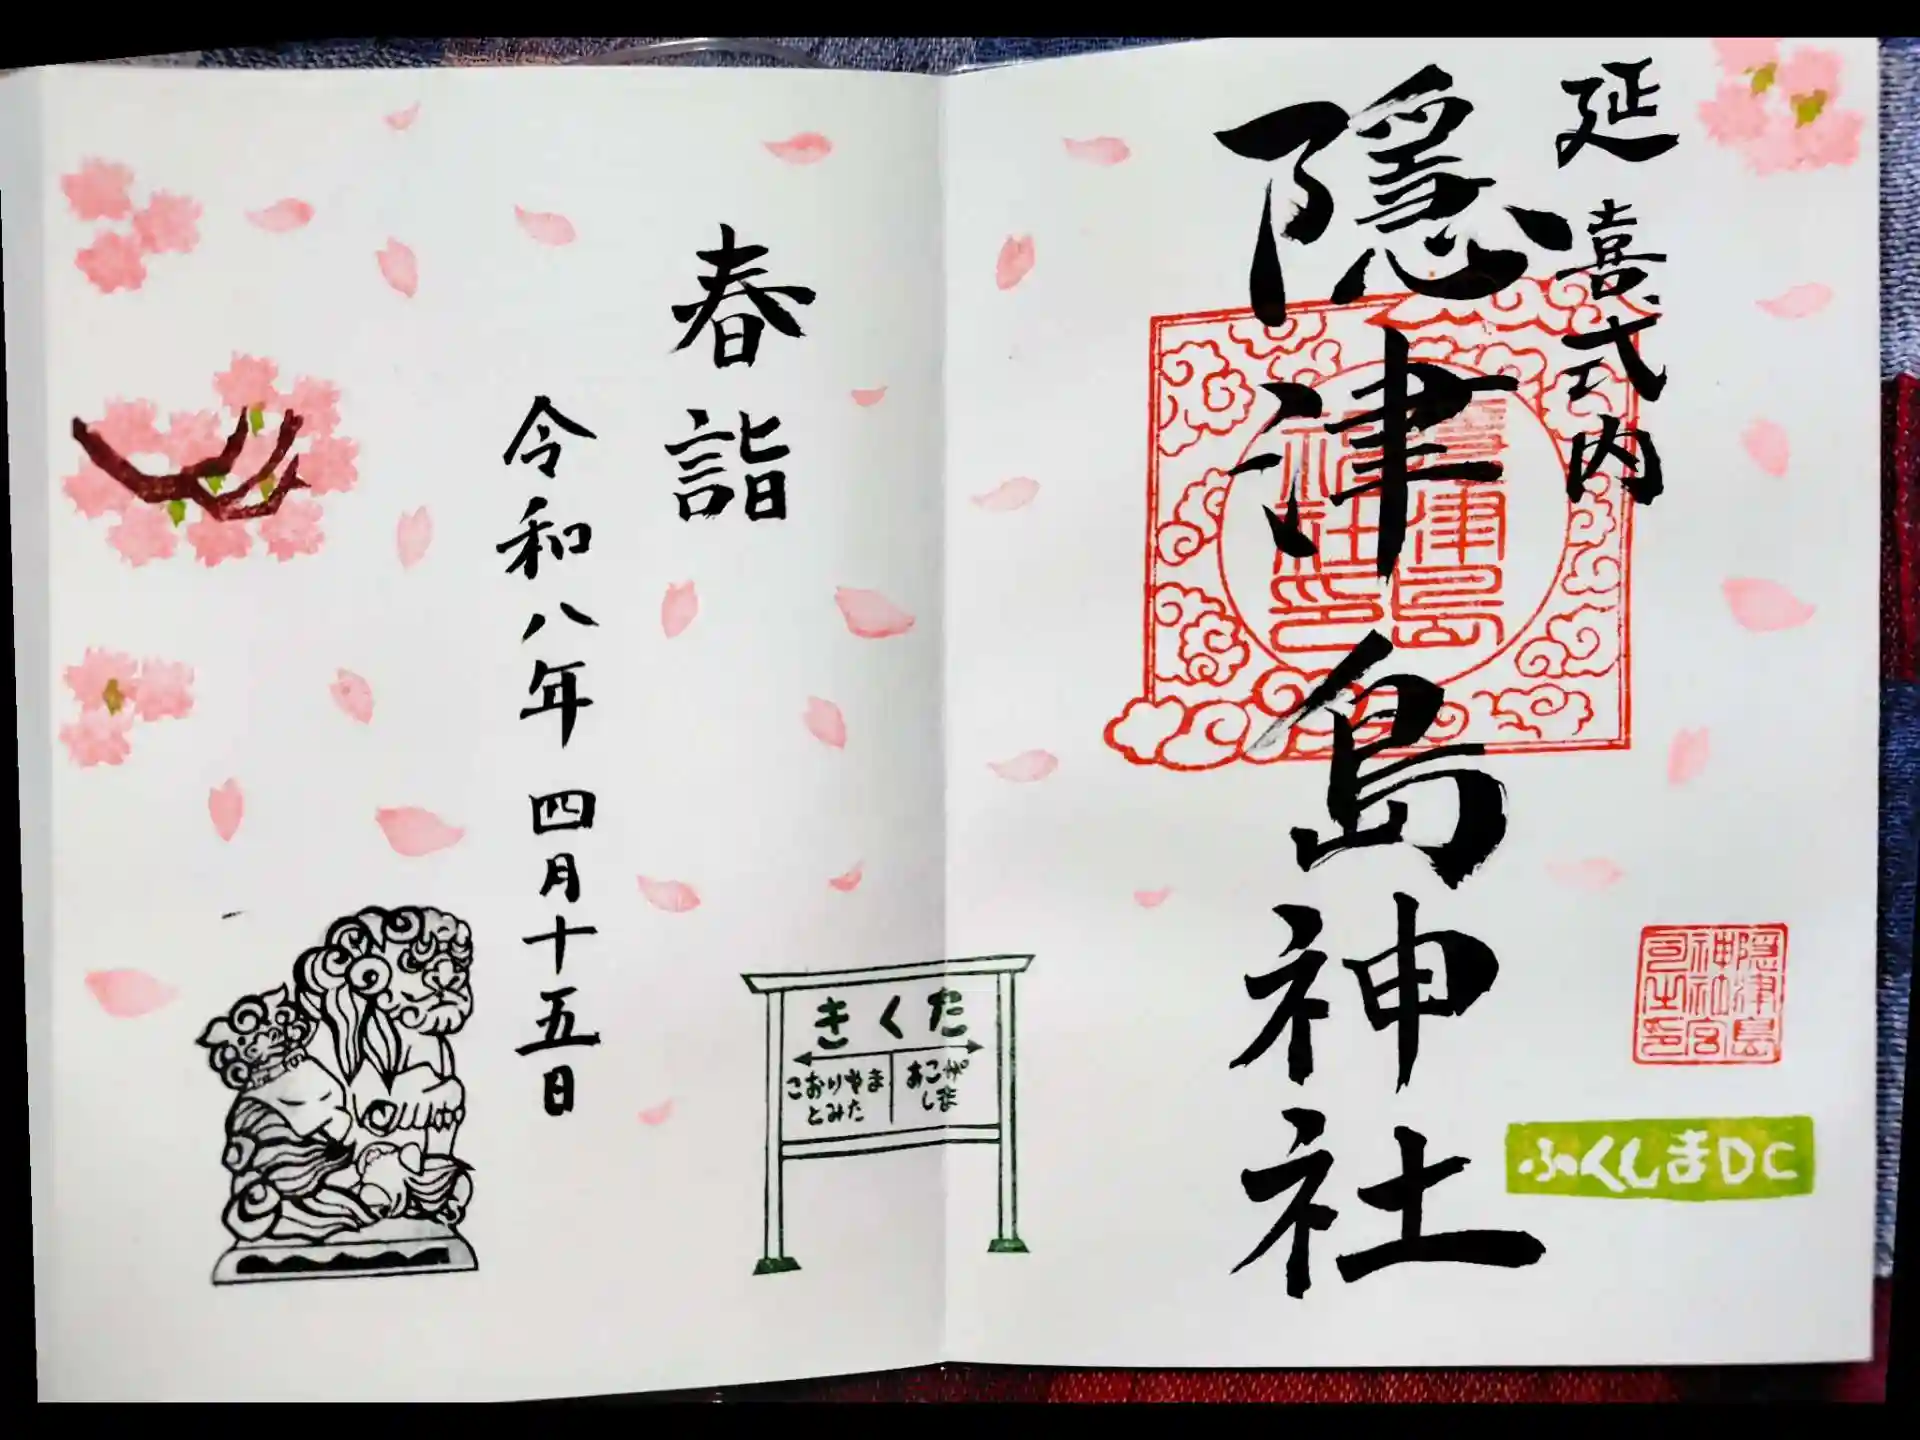 延喜式内
隠津島神社
隠津島
神社宮
司之印
ふくしまDC
春詣
令和八年四月十五日
きくた
こおりやま
とみた
あこが
しま